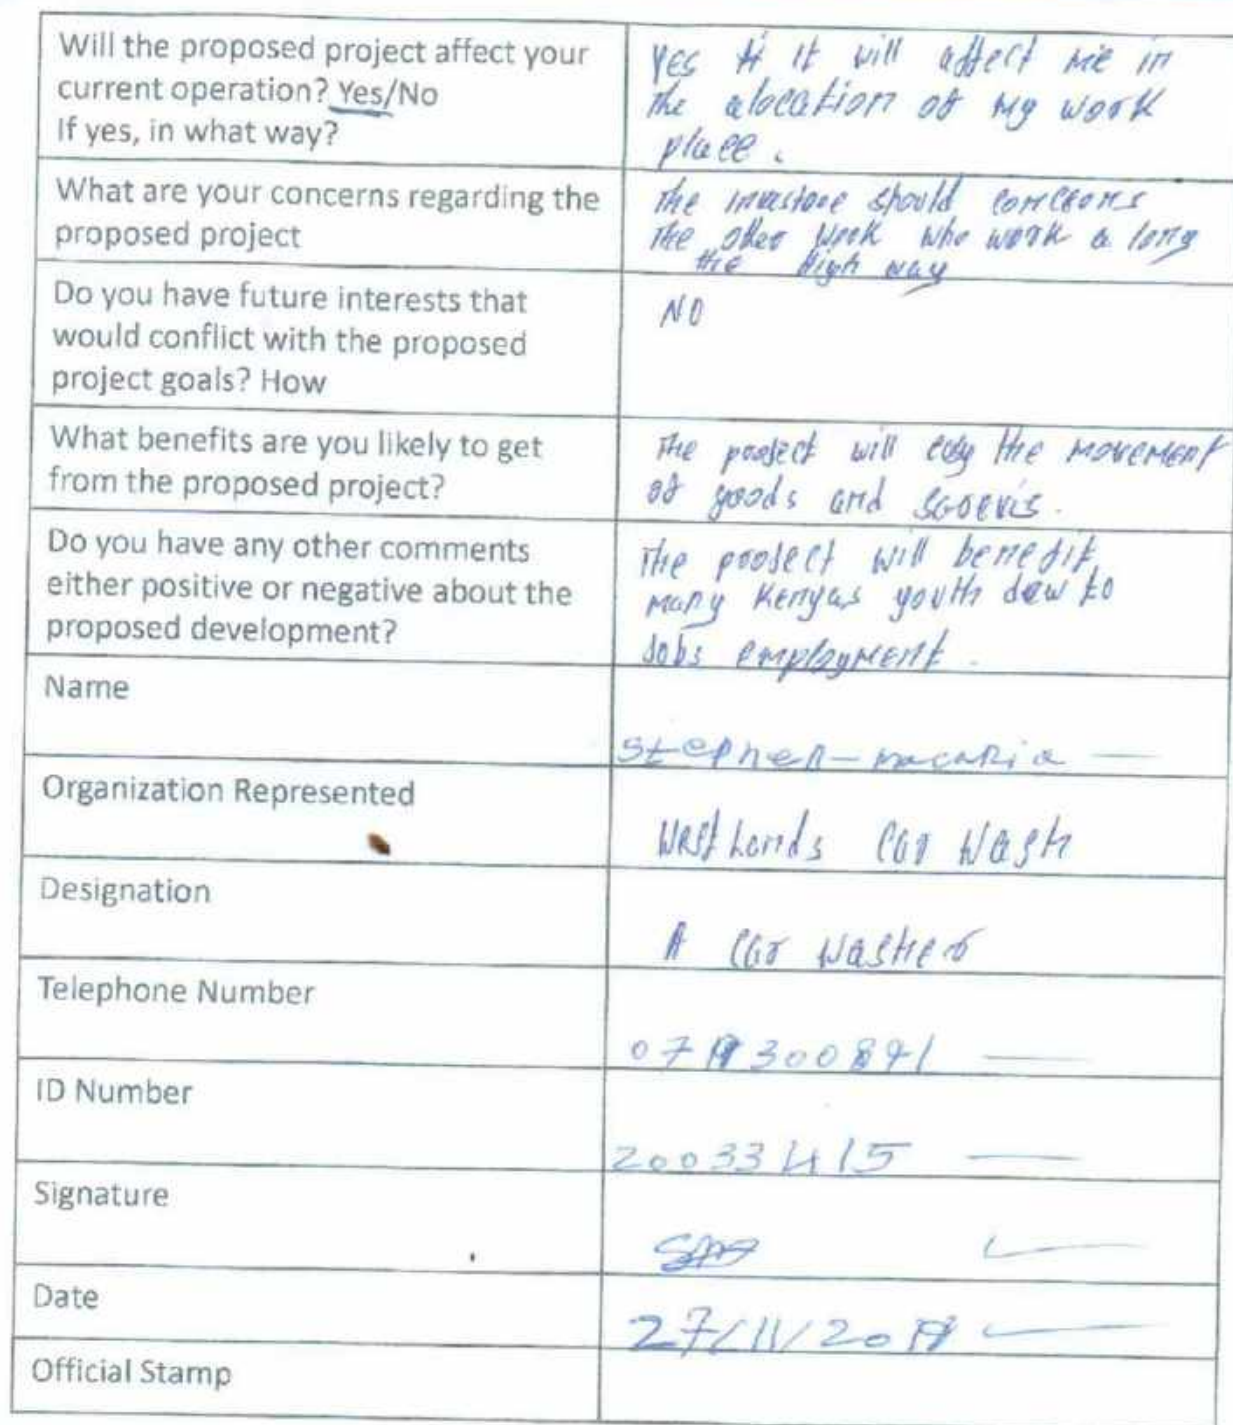 Will the proposed project affect your
current operation? Yes/No
If yes, in what way?
Yes it will affect me in
the alocation of my work
place.
What are your concerns regarding the
proposed project
The should
the other work who work a long
the High way
Do you have future interests that
would conflict with the proposed
project goals? How
NO
What benefits are you likely to get
from the proposed project?
The project will the movement
of goods and
Do you have any other comments
either positive or negative about the
proposed development?
The project will benefit
many Kenyas youth dew to
Jobs employment.
Name
Stephen-macaria
Organization Represented
West Lands Car Wash
Designation
A Car Washer
Telephone Number
ID Number
20033415
Signature
Date
27/11/
Official Stamp